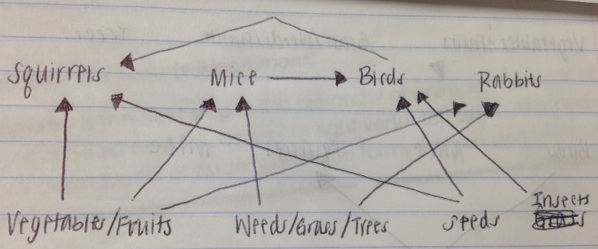 Squirrels Mice Birds Rabbits
Vegetables/Fruits Weeds/Grass/Trees Seeds Insects